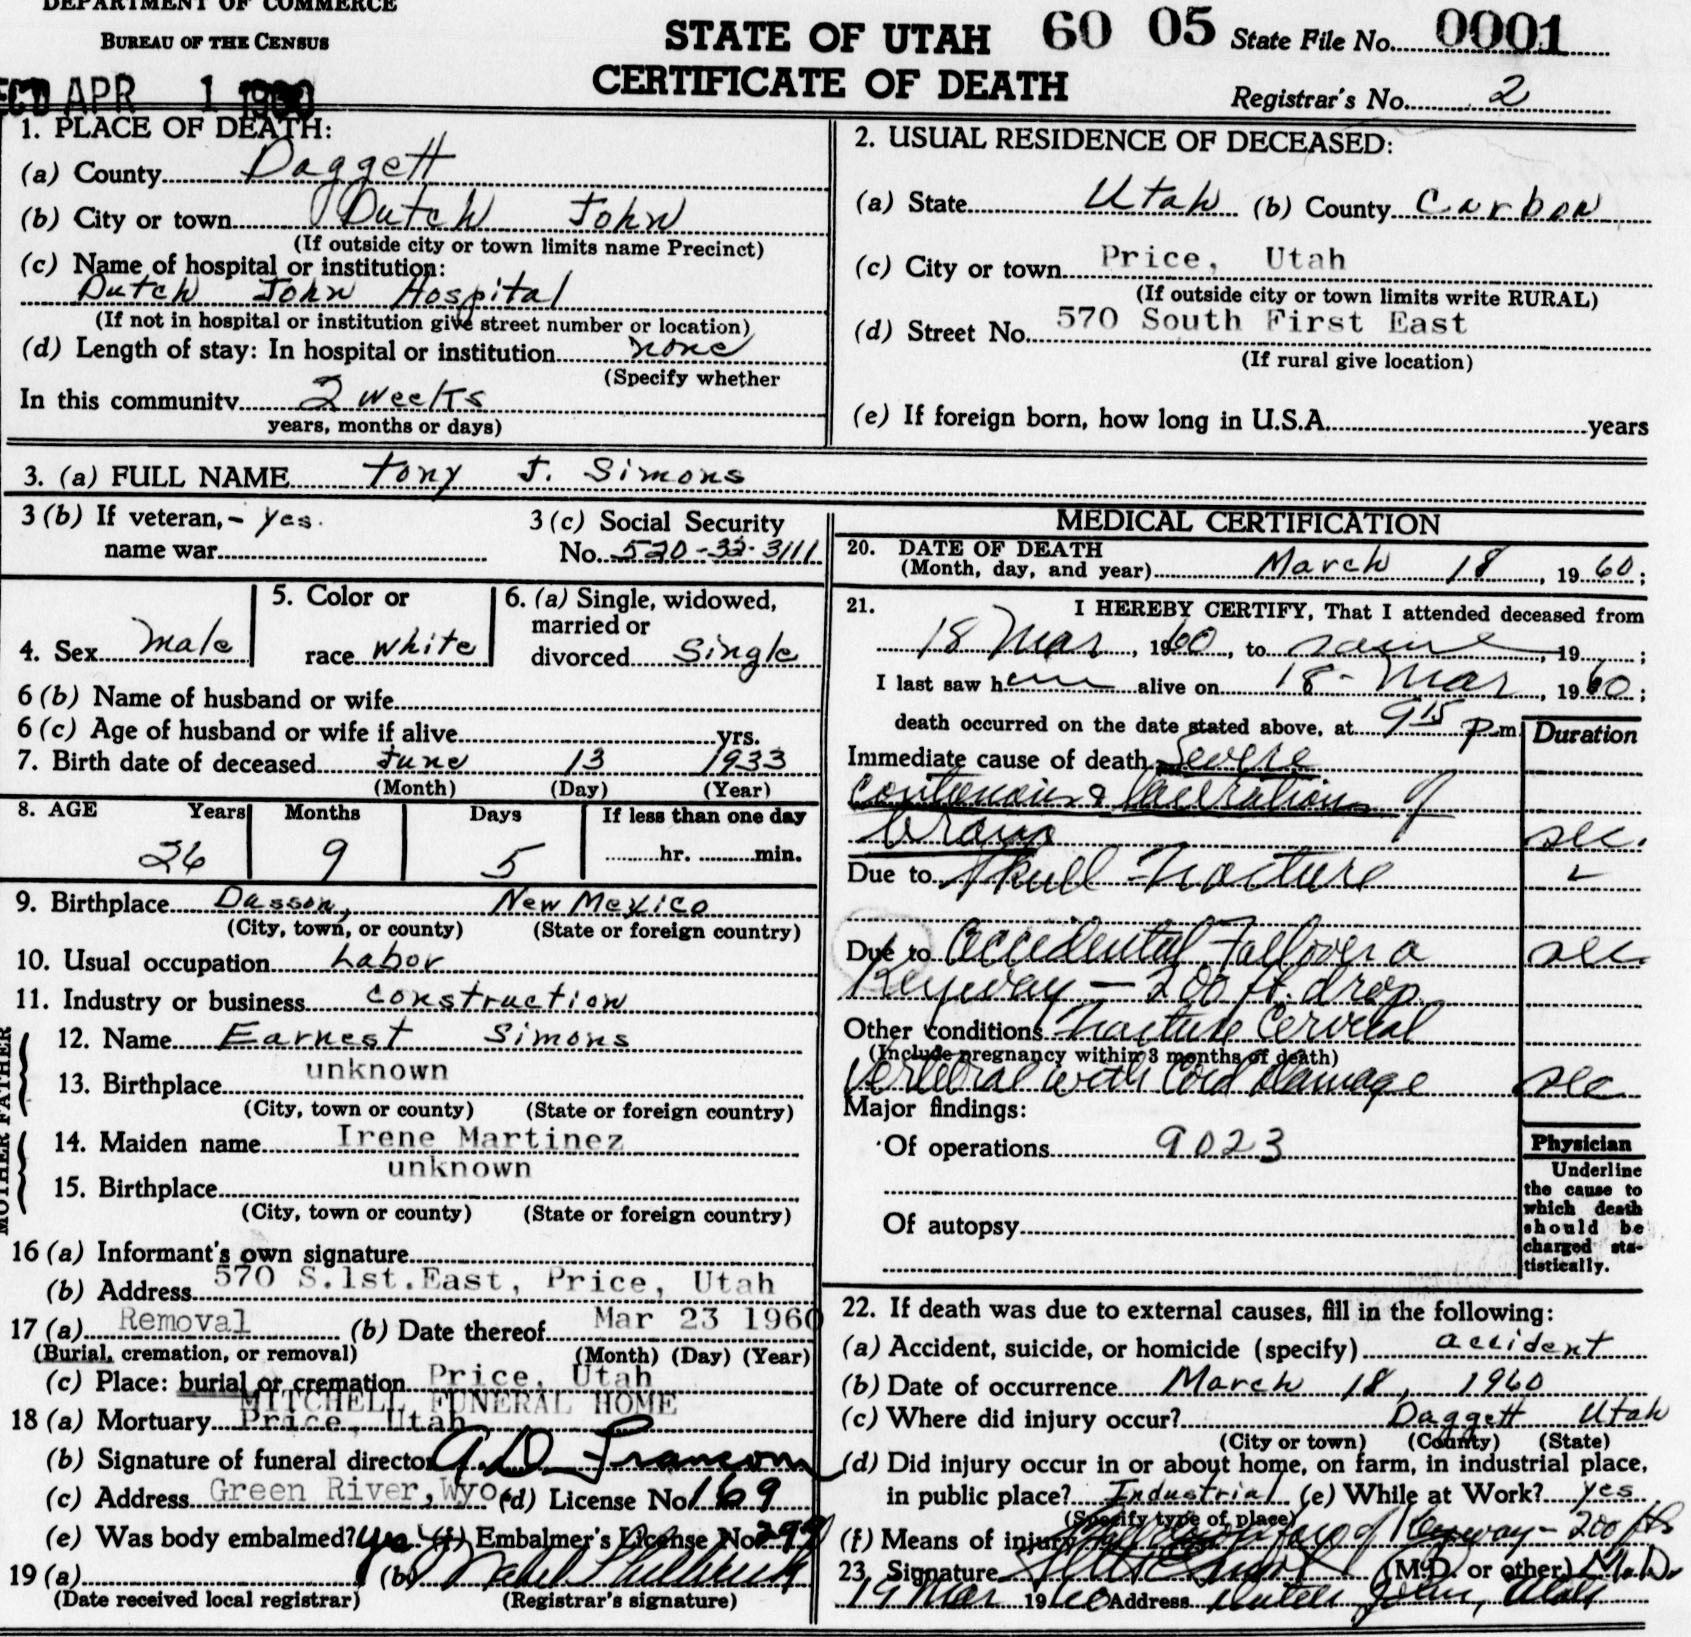 DEPARTMENT OF COMMERCE
BUREAU OF THE CENSUS
REC'D APR 1 1960
STATE OF UTAH
CERTIFICATE OF DEATH
60 05 State File No. 0001
Registrar's No. 2
1. PLACE OF DEATH:
(a) County Daggett
(b) City or town Dutch John
(If outside city or town limits name Precinct)
(c) Name of hospital or institution:
Dutch John Hospital
(If not in hospital or institution give street number or location)
(d) Length of stay: In hospital or institution none
(Specify whether
In this community 2 weeks
years, months or days)
2. USUAL RESIDENCE OF DECEASED:
(a) State Utah (b) County Carbon
(c) City or town Price, Utah
(If outside city or town limits write RURAL)
(d) Street No. 570 South First East
(If rural give location)
(e) If foreign born, how long in U.S.A. years
3. (a) FULL NAME Tony J. Simons
3 (b) If veteran, - yes.
name war
3 (c) Social Security
No. 520-32-3111
4. Sex Male
5. Color or
race white
6. (a) Single, widowed,
married or
divorced Single
6 (b) Name of husband or wife
6 (c) Age of husband or wife if alive yrs.
7. Birth date of deceased June 13 1933
(Month) (Day) (Year)
8. AGE Years Months Days If less than one day
26 9 5 hr. min.
9. Birthplace Dasson, New Mexico
(City, town, or county) (State or foreign country)
10. Usual occupation Labor
11. Industry or business construction
FATHER
12. Name Earnest Simons
13. Birthplace unknown
(City, town or county) (State or foreign country)
MOTHER
14. Maiden name Irene Martinez
15. Birthplace unknown
(City, town or county) (State or foreign country)
16 (a) Informant's own signature
(b) Address 570 S.1st.East, Price, Utah
17 (a) Removal (b) Date thereof Mar 23 1960
(Burial, cremation, or removal) (Month) (Day) (Year)
(c) Place: burial or cremation Price, Utah
MITCHELL FUNERAL HOME
18 (a) Mortuary Price, Utah
(b) Signature of funeral director A D Francom
(c) Address Green River, Wyo. (d) License No. 169
(e) Was body embalmed? yes (f) Embalmer's License No. 299
19 (a) (b)
(Date received local registrar) (Registrar's signature)
MEDICAL CERTIFICATION
20. DATE OF DEATH
(Month, day, and year) March 18, 1960;
21. I HEREBY CERTIFY, That I attended deceased from
18 Mar, 1960, to same, 19 ;
I last saw him alive on 18 - Mar, 1960;
death occurred on the date stated above, at 9 15 p.m. Duration
Immediate cause of death Severe
contusions & lacerations of
brain sec.
Due to Skull Fracture
Due to Accidental Fall over a sec.
Keyway - 200 ft. drop
Other conditions Fracture Cervical
(Include pregnancy within 3 months of death)
Vertebrae with Cord Damage sec
Major findings:
Of operations 9023
Of autopsy
Physician
Underline
the cause to
which death
should be
charged sta-
tistically.
22. If death was due to external causes, fill in the following:
(a) Accident, suicide, or homicide (specify) accident
(b) Date of occurrence March 18, 1960
(c) Where did injury occur? Daggett Utah
(City or town) (County) (State)
(d) Did injury occur in or about home, on farm, in industrial place,
in public place? Industrial (e) While at Work? yes
(Specify type of place)
(f) Means of injury Keyway - 200 fts
23. Signature (M.D. or other) M.D.
19 Mar 1960 Address Dutch John, Utah